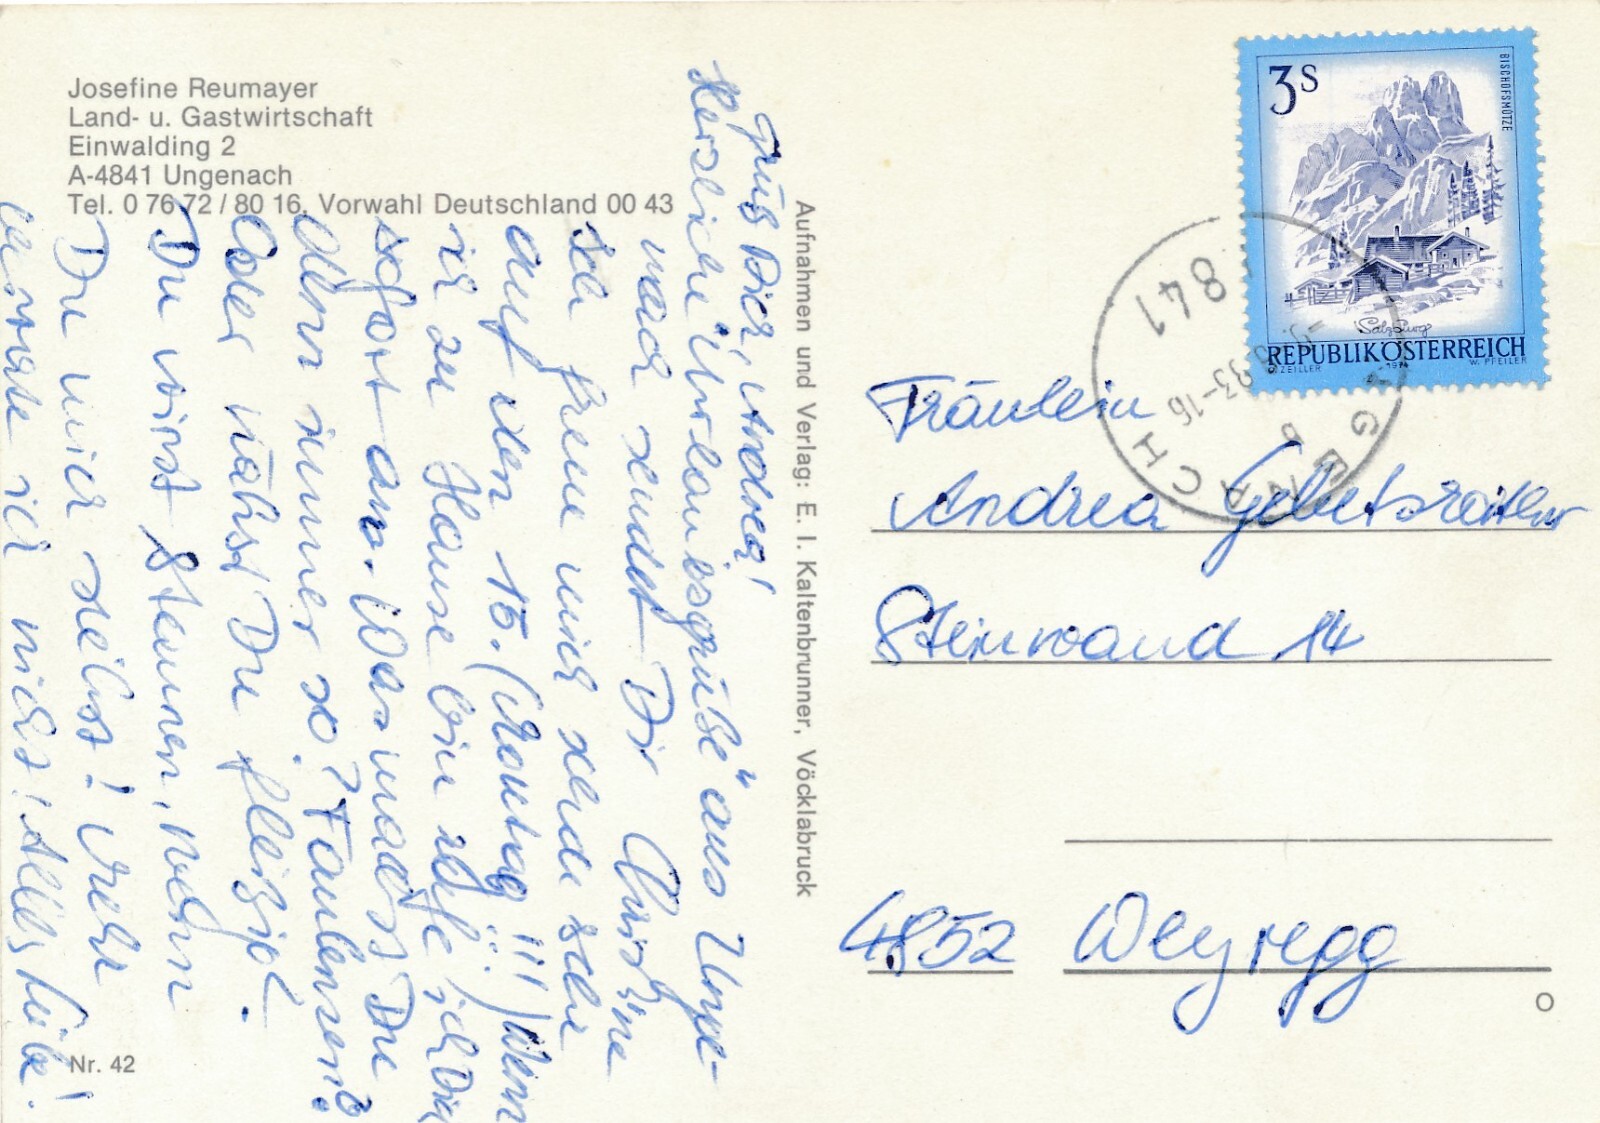 Josefine Reumayer
Land- u. Gastwirtschaft
Einwalding 2
A-4841 Ungenach
Tel. 0 76 72 / 80 16, Vorwahl Deutschland 00 43
Grüß Dich, Andrea!
Herzliche "Urlaubsgrüße" aus Unge-
nach sendet Dir Christine
Ich freue mich schon sehr
auf den 15. (Montag!!!) Wenn
ich zu Hause bin rufe ich Dich
sofort an. Was machst Du
denn immer so? Faulenzen?
Oder nähst Du fleißig?
Du wirst staunen, wenn
Du mich siehst! Mehr
verrate ich nicht! Alles Liebe!
Nr. 42
Aufnahmen und Verlag: E. I. Kaltenbrunner, Vöcklabruck
3S
BISCHOFSMÜTZE
Salzburg
REPUBLIK ÖSTERREICH
ZEILLER 1974 W. PFEILER
841
Fräulein
Andrea
Steinwand 14
4852 Weyregg